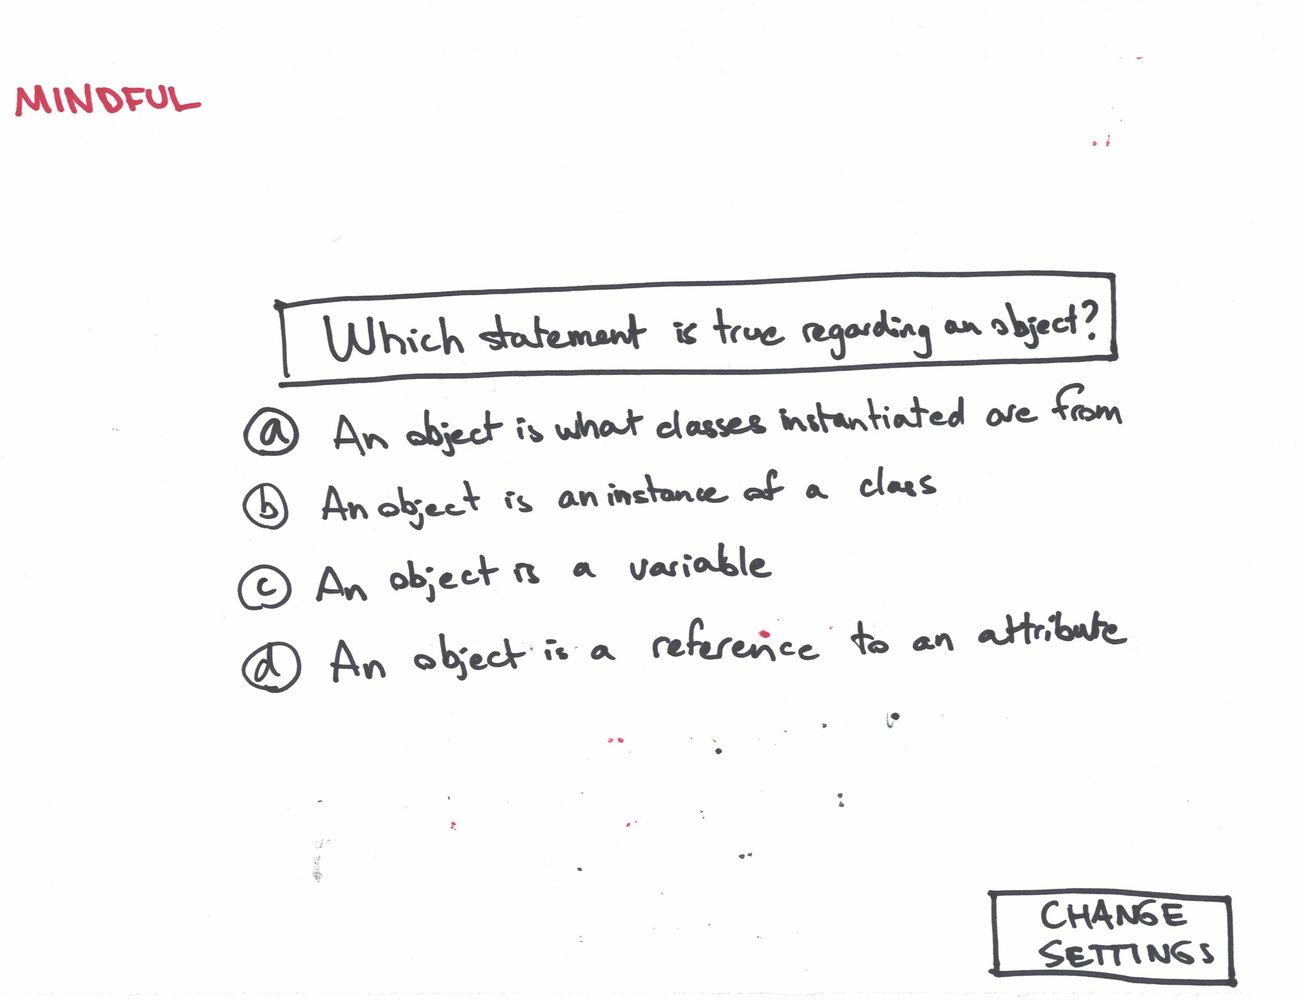 MINDFUL
Which statement is true regarding an object?
a An object is what classes instantiated are from
b An object is an instance of a class
c An object is a variable
d An object is a reference to an attribute
CHANGE
SETTINGS